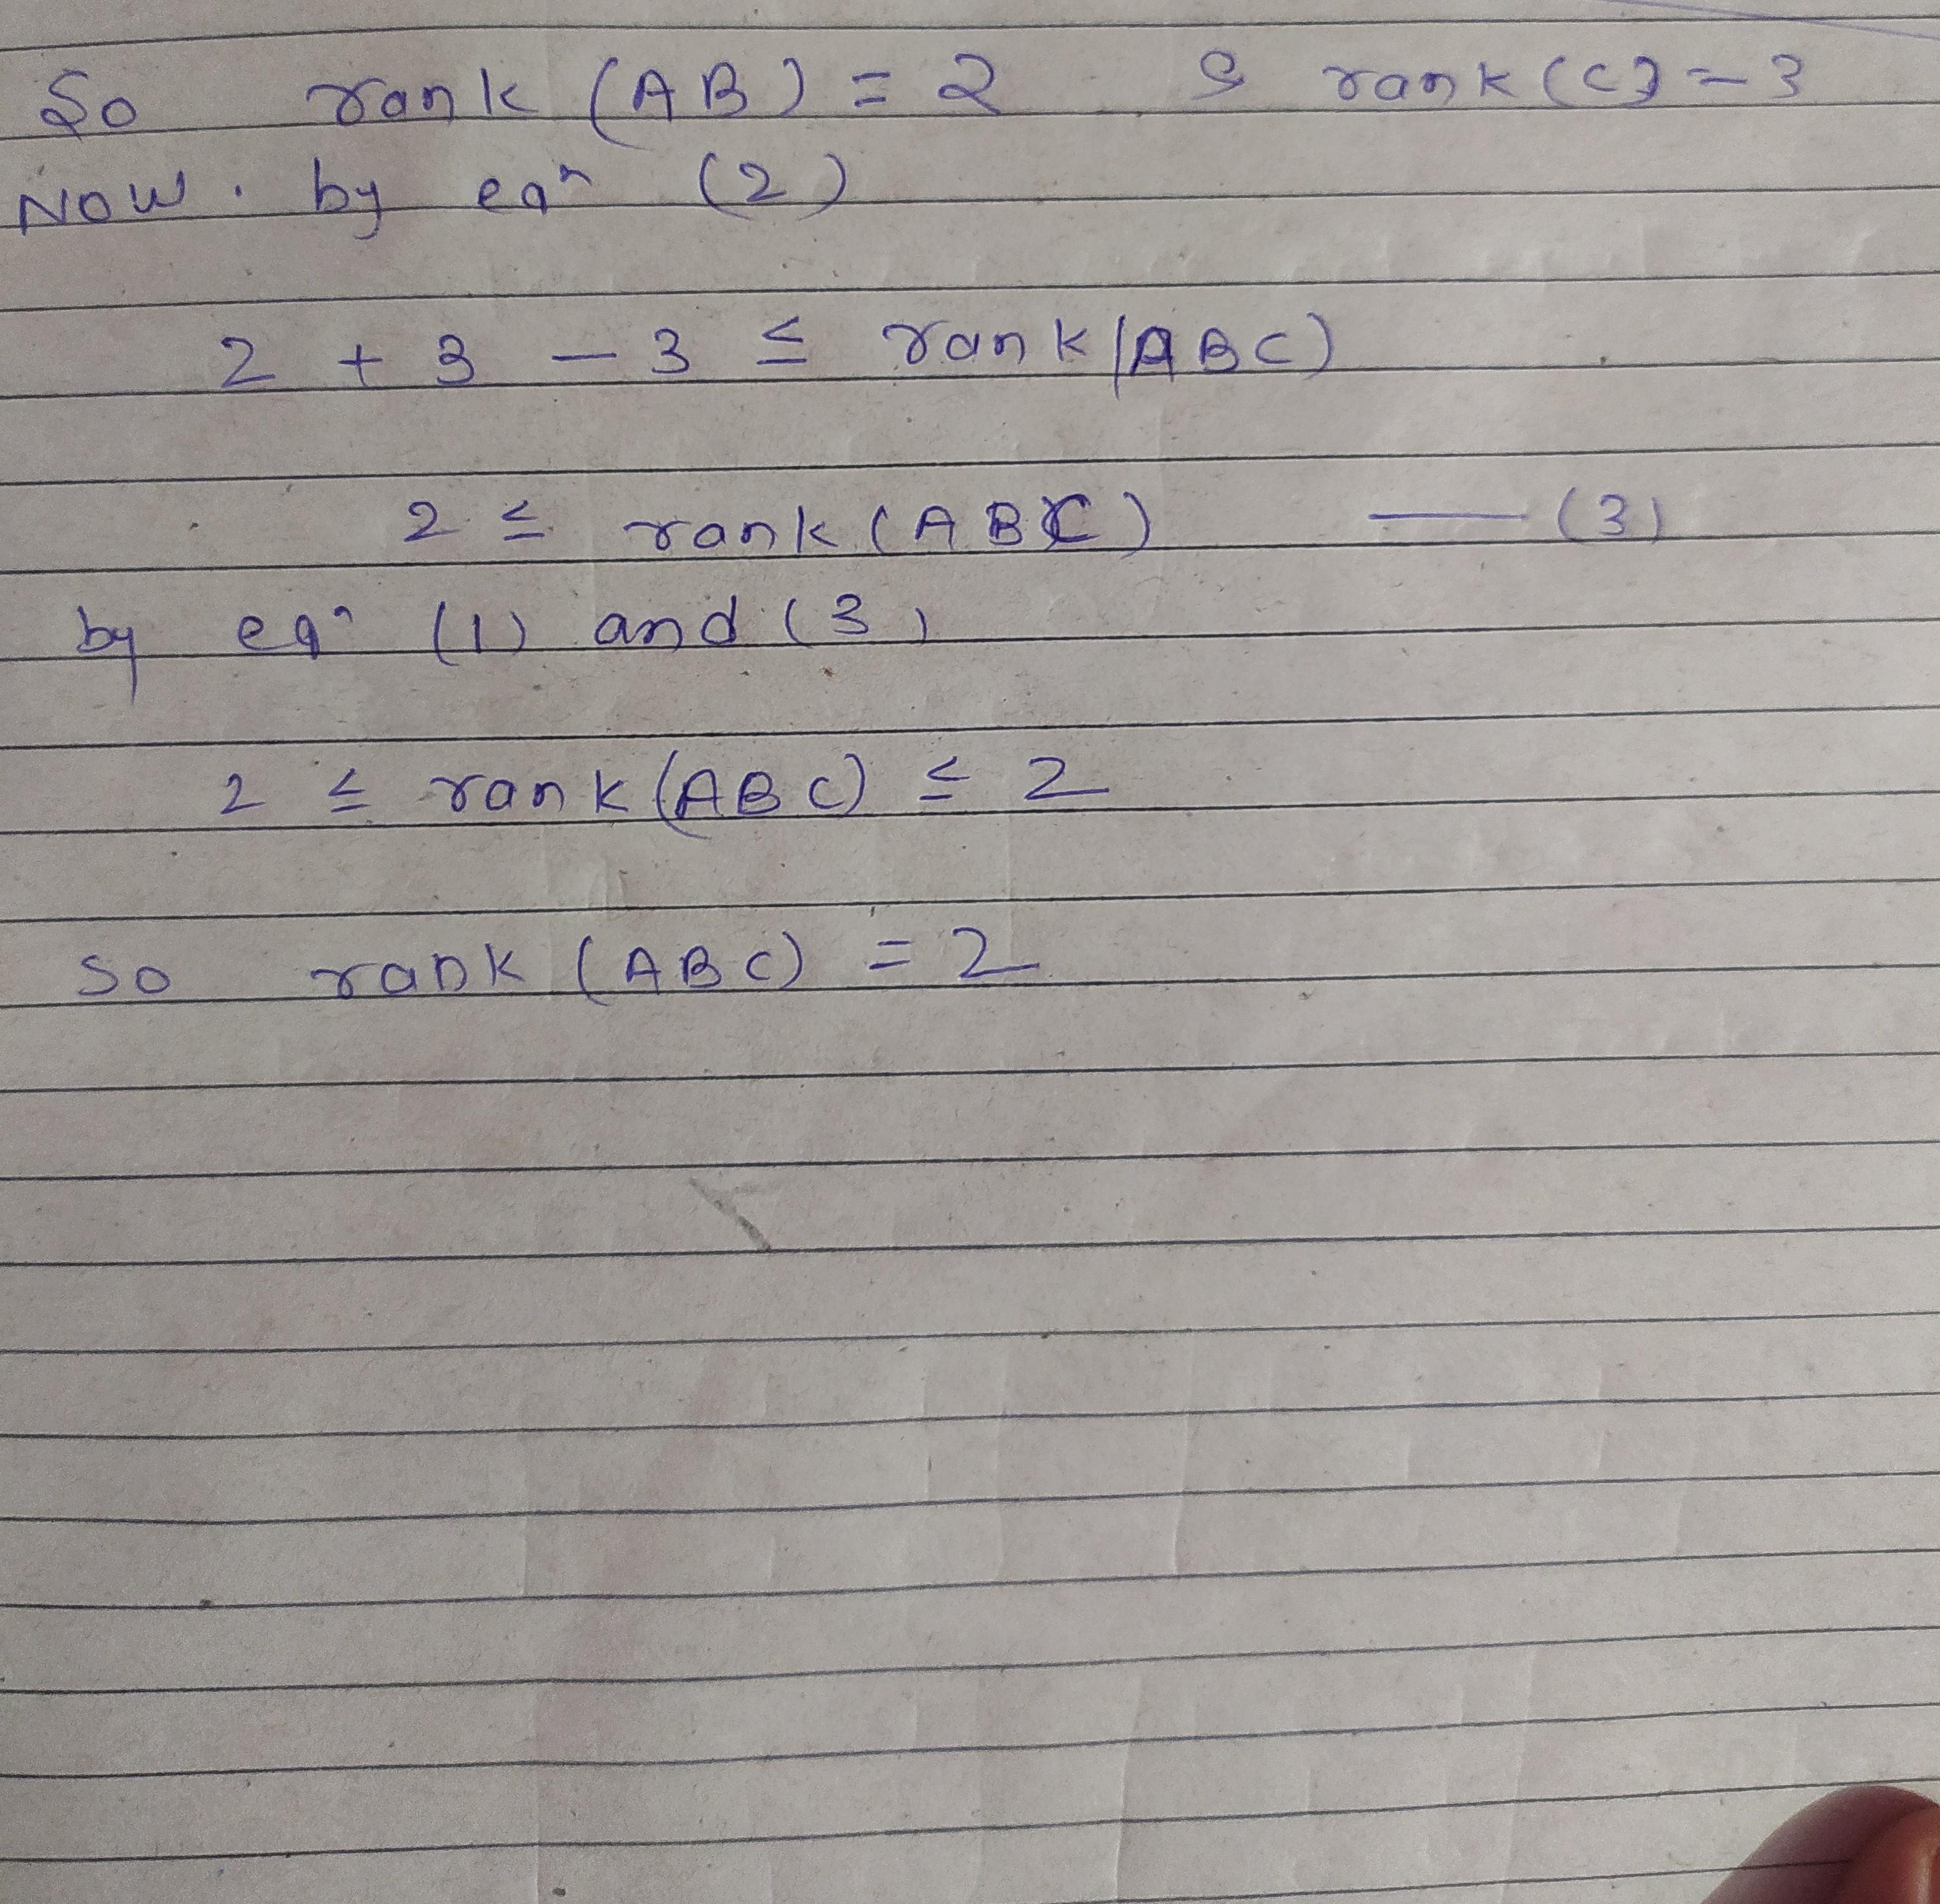 So rank (AB) = 2 & rank (C) = 3
Now. by eqⁿ (2)
2 + 3 - 3 ≤ rank (ABC)
2 ≤ rank (ABC) —— (3)
by eqⁿ (1) and (3)
2 ≤ rank (ABC) ≤ 2
So rank (ABC) = 2